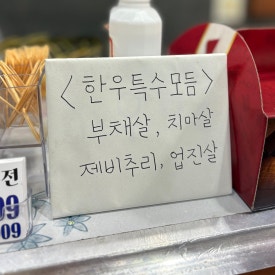 <한우특수모듬>
부채살, 치마살
제비추리, 업진살
전
09
09